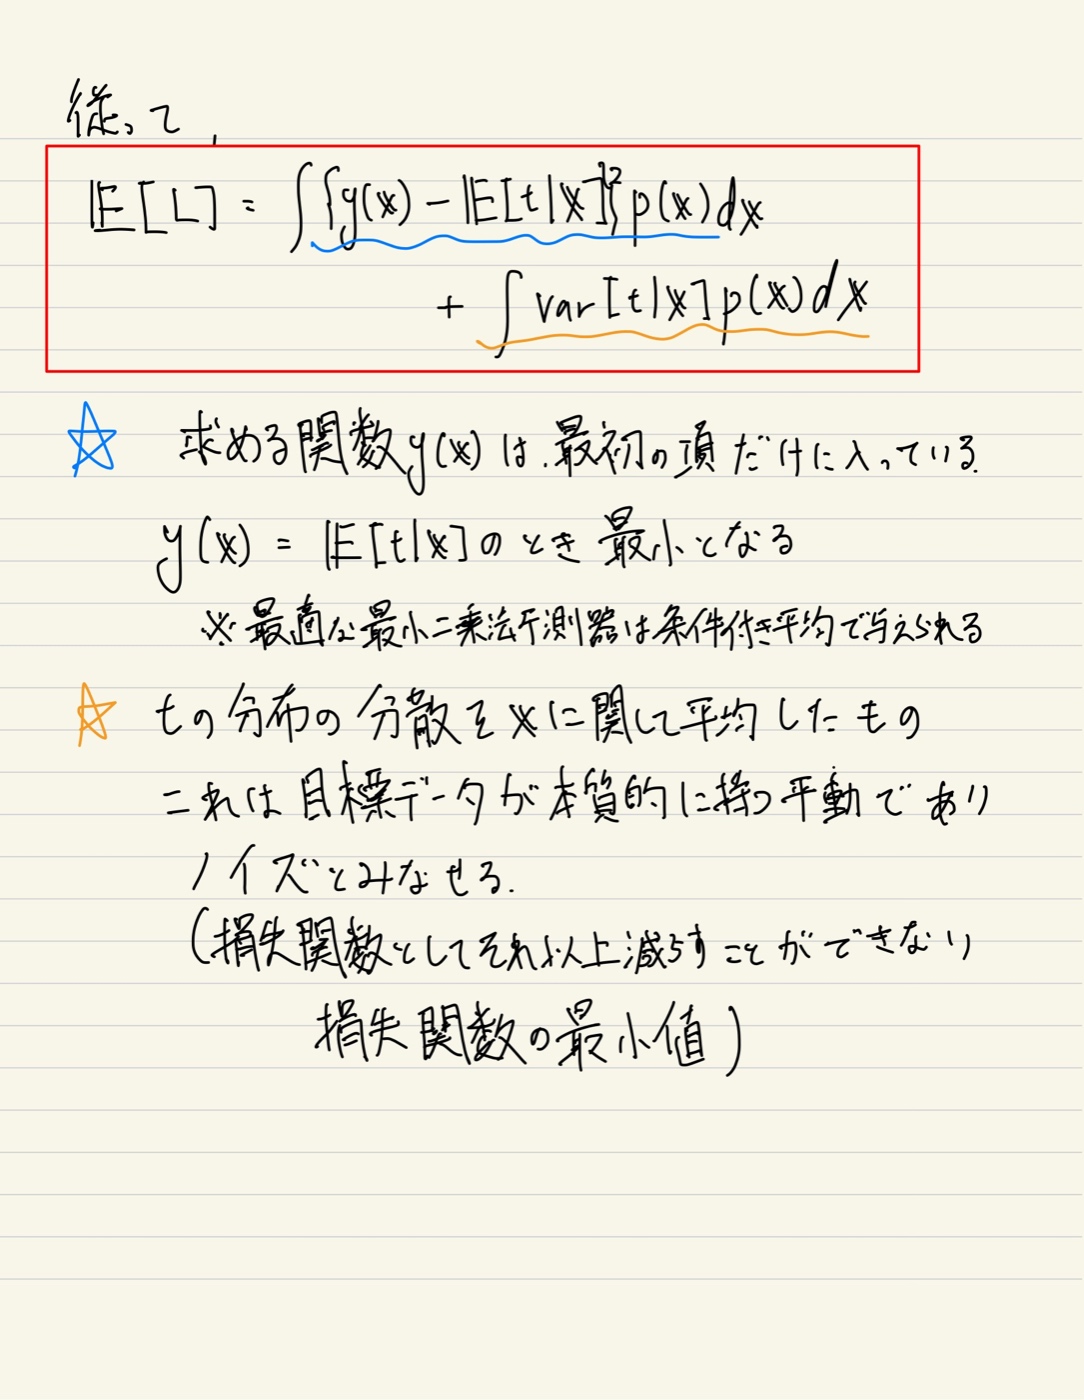 従って,
𝔼[L] = ∫{y(𝕩) − 𝔼[t|𝕩]}²p(𝕩)d𝕩
+ ∫var[t|𝕩]p(𝕩)d𝕩
☆ 求める関数y(𝕩)は、最初の項だけに入っている.
y(𝕩) = 𝔼[t|𝕩]のとき最小となる
※最適な最小二乗法予測器は条件付き平均で与えられる
☆ tの分布の分散を𝕩に関して平均したもの
これは目標データが本質的に持つ平動であり
ノイズとみなせる.
(損失関数としてそれ以上減らすことができない
損失関数の最小値)